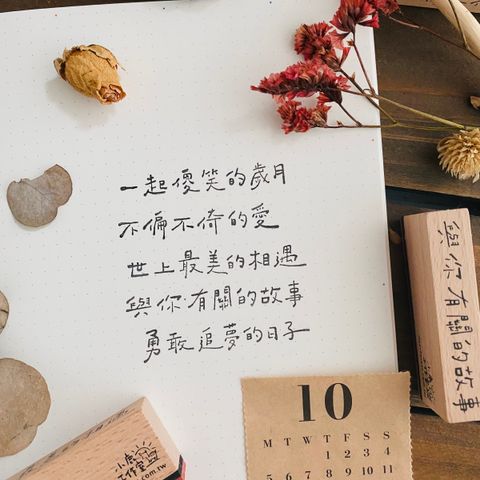 一起傻笑的歲月
不偏不倚的愛
世上最美的相遇
與你有關的故事
勇敢追夢的日子
與你有關的故事
小鹿
工作室
.com.tw
10
M T W T F S S
1 2 3 4
5 6 7 8 9 10 11